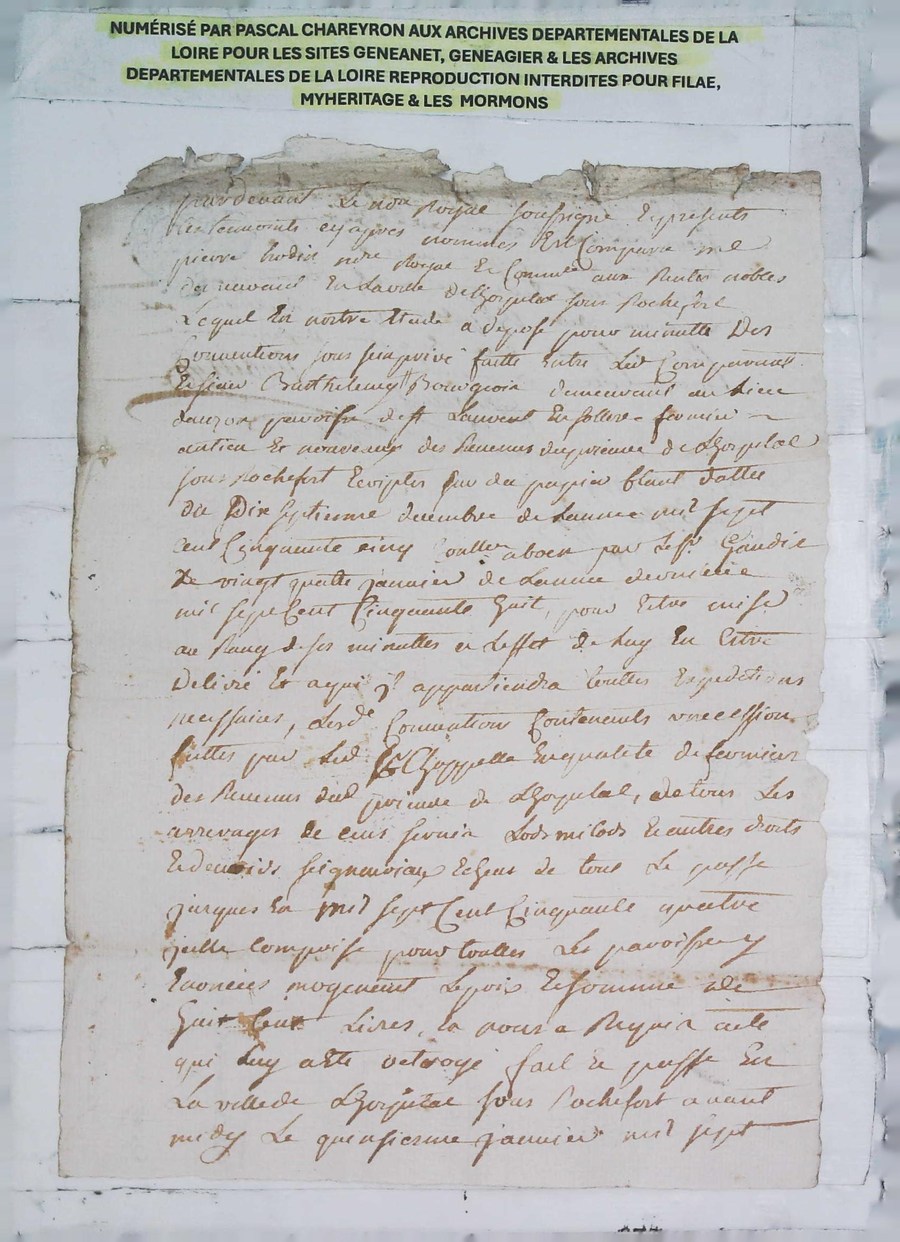 NUMÉRISÉ PAR PASCAL CHAREYRON AUX ARCHIVES DEPARTEMENTALES DE LA
LOIRE POUR LES SITES GENEANET, GENEAGIER & LES ARCHIVES
DEPARTEMENTALES DE LA LOIRE REPRODUCTION INTERDITES POUR FILAE,
MYHERITAGE & LES MORMONS
pardevant Le no.re Royal soussigné Et presents
les temoints cy apres nommés Est Comparu me
pierre no.re Royal Et aux Rentes nobles
demeurant En La ville De Lhospital sous Rochefort
Lequel En nostre Etude a deposé pour minutte Des
Conventions sous sein privé faitte Entre Led. Comparant
Et sieur Barthelemy Bourgeois demeurant au Lieu
dauzon paroisse de st Laurent En sollore fermier
antien Et nouveaux des Revenus du prieuré de Lhospital
sous Rochefort Ecriptes sur du papier blant datté
du Dix septieme decembre de Lannee mil sept
cent Cinquante cinq aboen par Le sr. Gaudin
Le vingt quatre janvier de Lannee derniere
mil sept Cent Cinquante huit, pour Estre mise
au Rang de ses minuttes a Leffet de Luy En Estre
Delivré Et a qui jl appartiendra touttes Expeditions
necessaires, Lesd.es Conventions Contenants une cession
faittes par Led. Chappelle En qualité de fermier
des Revenus dud. prieuré de Lhospital, de tous Les
arrerages de cens servis Lods milods Et autres droits
Et devoirs seigneuriaux Echeus de tout Le passé
jusques En mil sept Cent Cinquante quatre
jcelle Comprise pour touttes Les paroisses y
Enoncées moyenent Le prix Et somme de
huit Cent Livres, Et nous a Requis acte
qui Luy a Esté octroyé fait Et passé En
La ville de Lhospital sous Rochefort avant
midy Le quensieme janvier mil sept